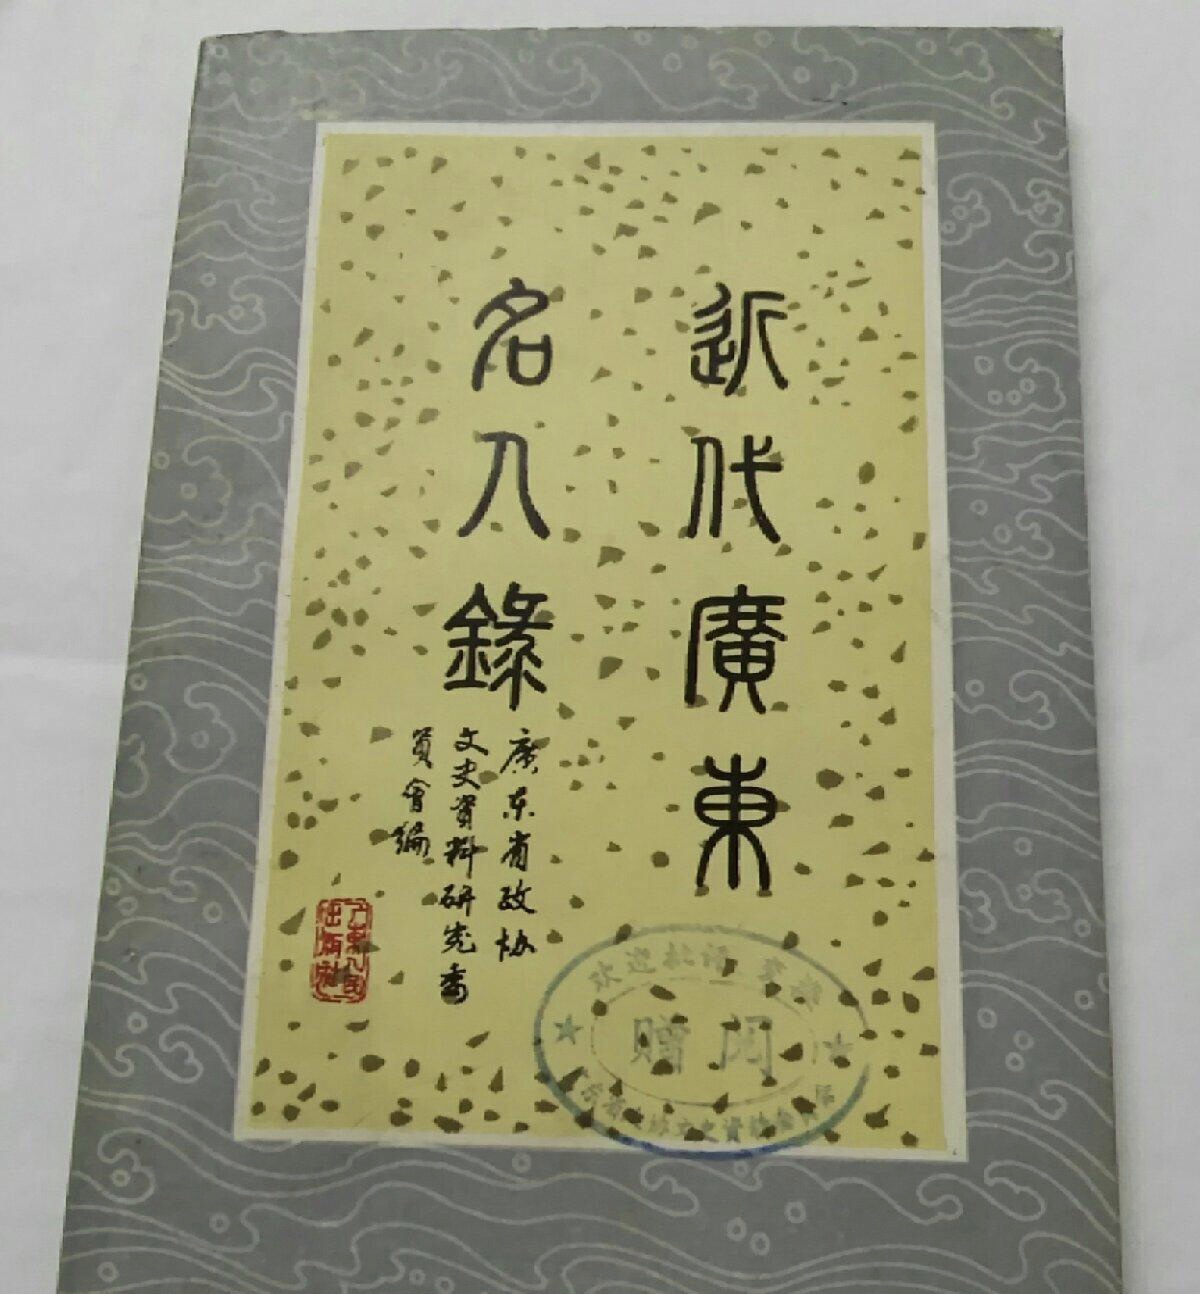 近代廣東
名人錄
廣东省政协
文史資料研究委
員會编
广东人民
出版社
欢迎批评
赠阅
文史資